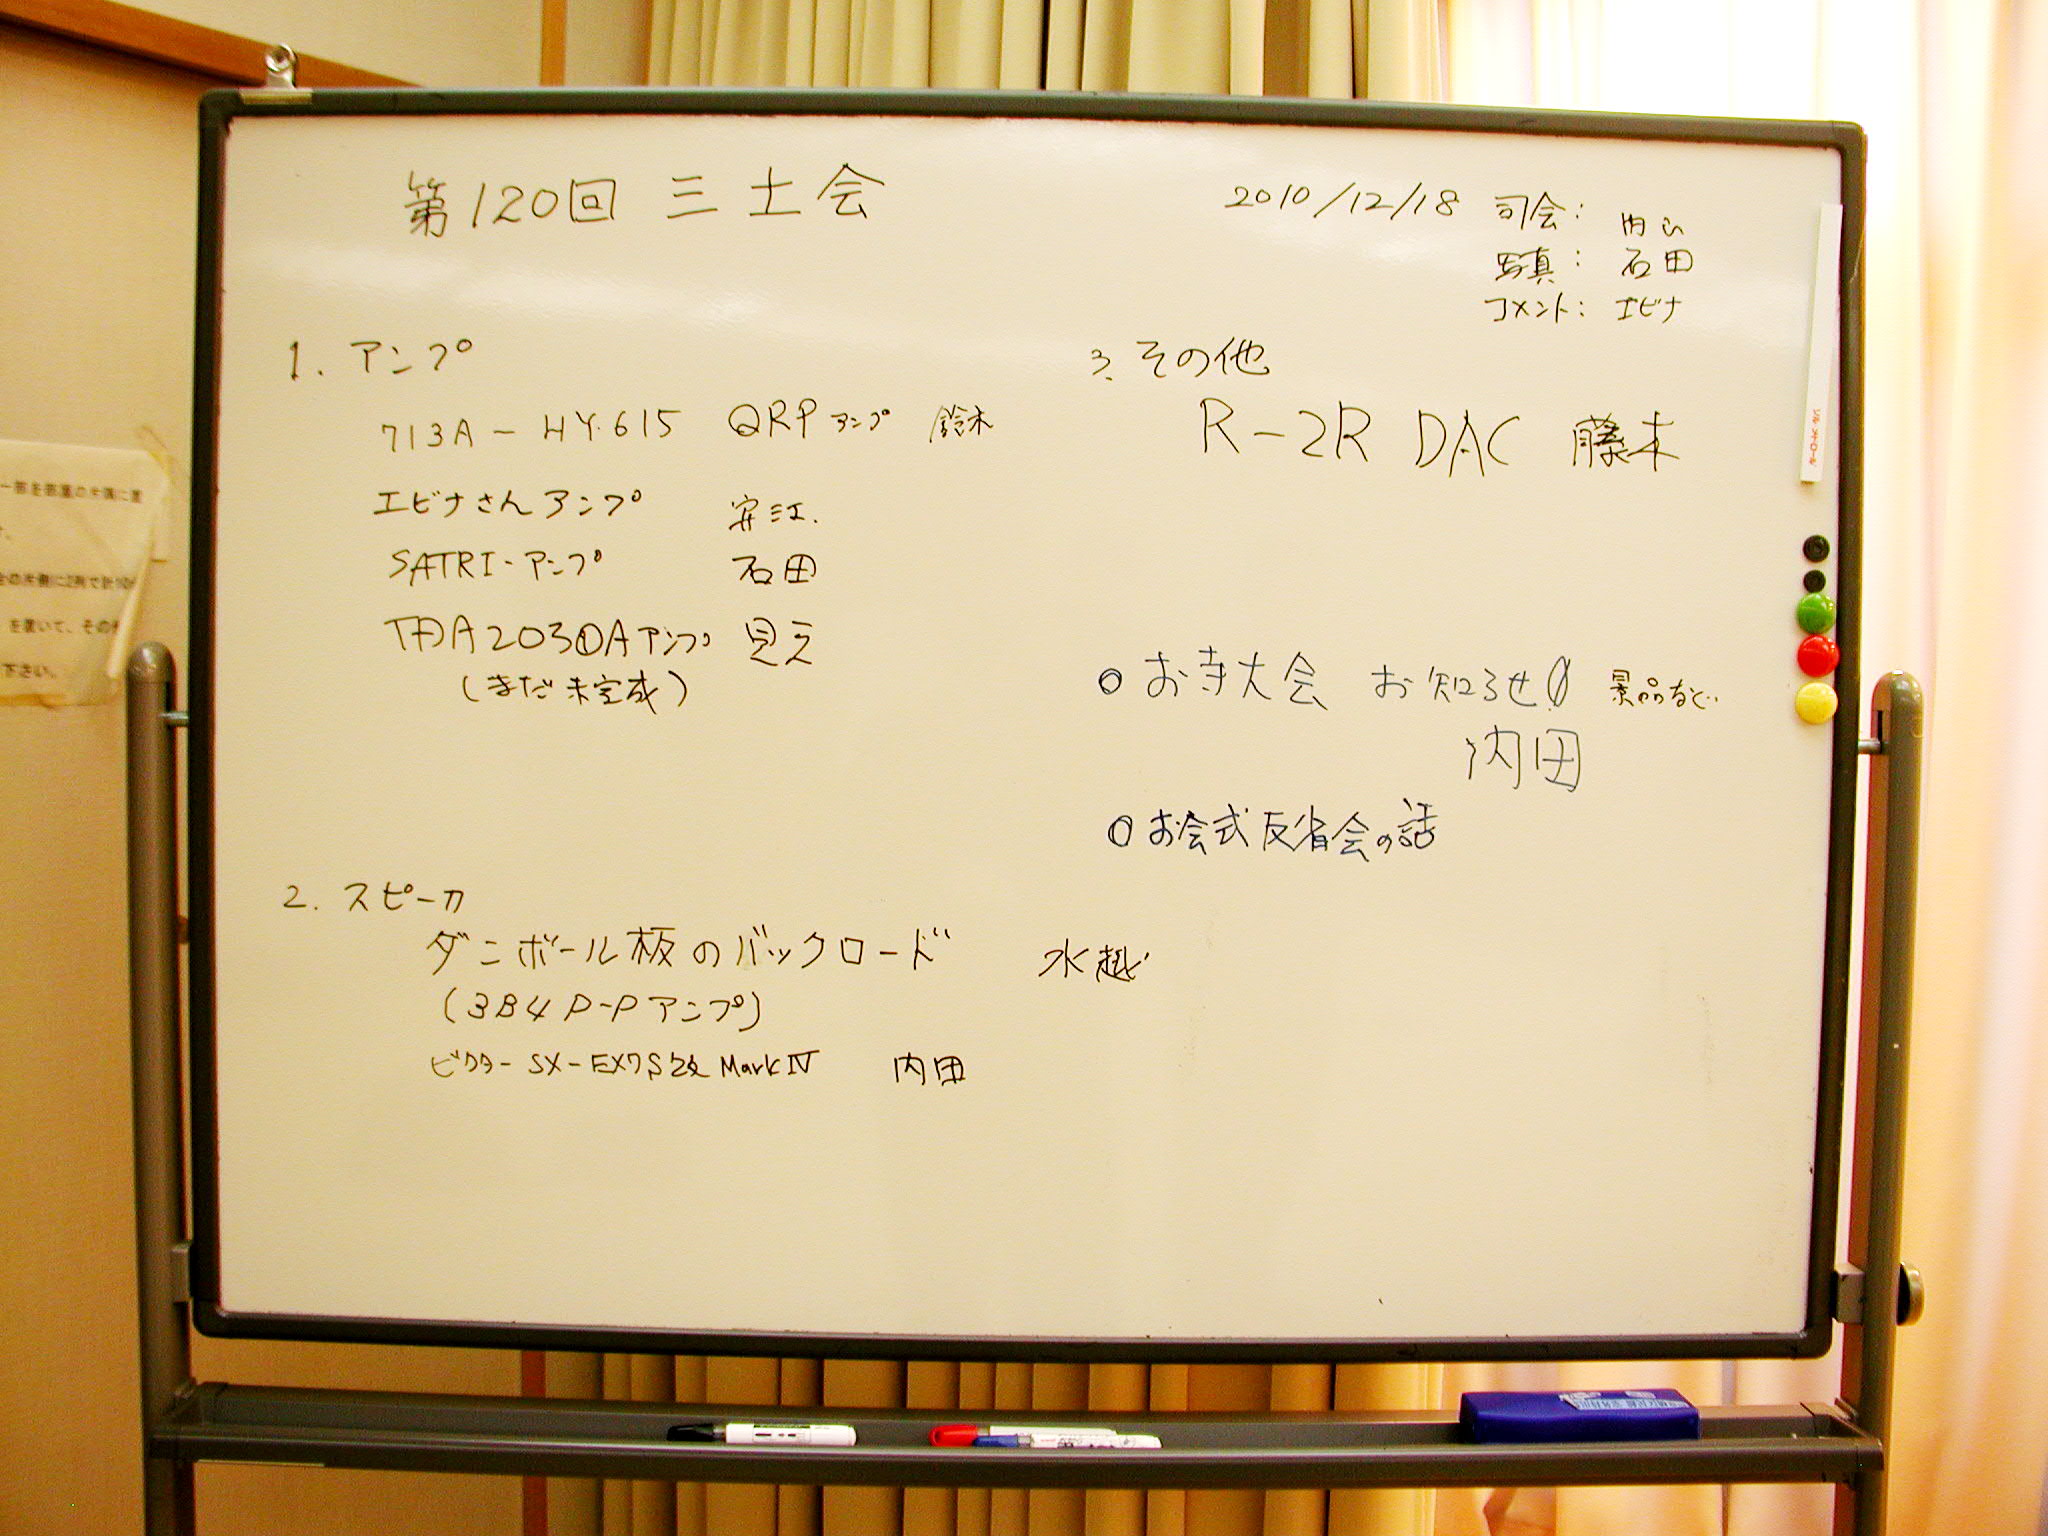 第120回 三土会
2010/12/18 司会:
写真: 石田
コメント: エビナ
1. アンプ
713A-HY.615 QRPアンプ 鈴木
エビナさんアンプ 安江.
SATRI-アンプ 石田
TDA2030Aアンプ
(まだ未完成)
2. スピーカ
ダンボール板のバックロード 水越
(3B4 P-Pアンプ)
ビクター SX-EX7S改 Mark IV 内田
3. その他
R-2R DAC 藤本
お寺大会 お知らせ 景品など
内田
お会式反省会の話
一部を部屋の片隅に置
の片側に2列で計10
を置いて、その
下さい。